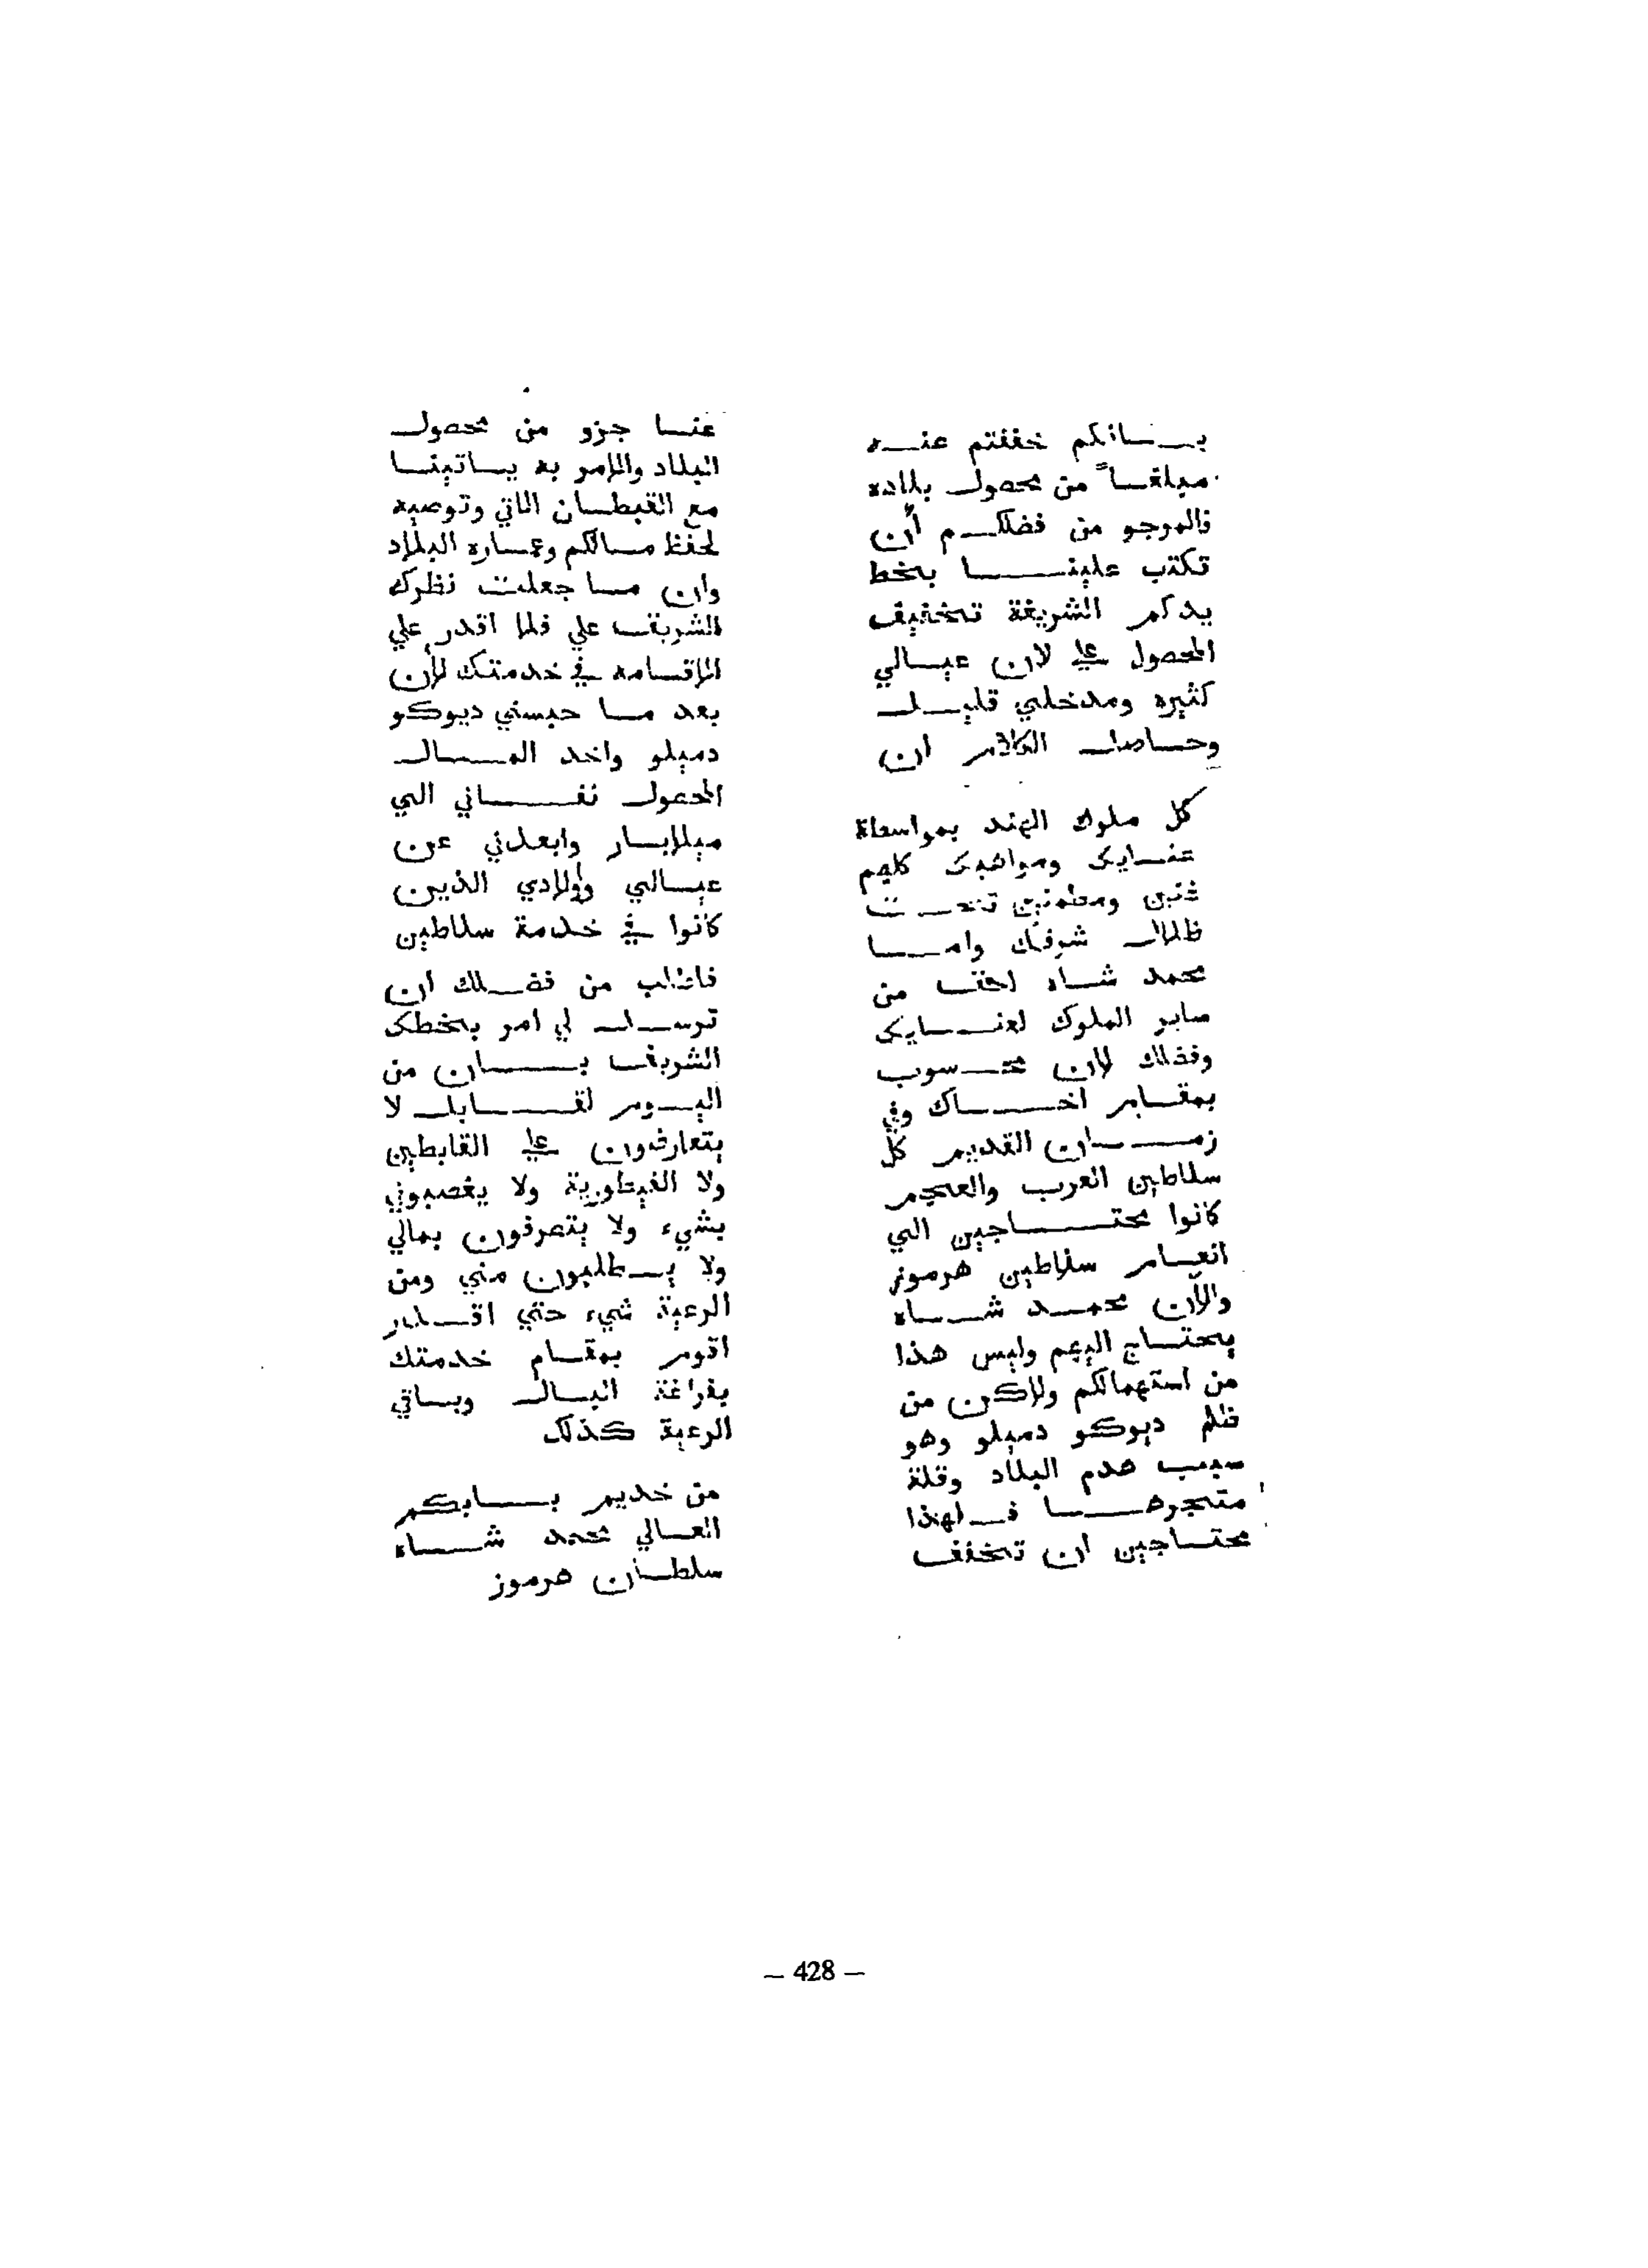 بانكم خففتم عنه
مبلغاً من محصول بلاده
فالمرجو من فضلكم أن
تكتب علينا بخط
يدكم الشريفة تخفيف
المحصول علي لان عيالي
كثيره ومدخلي قليل
وحاصل الكلام ان
كل ملوك الهند بمواسطة
عنايك ومواهبك كلهم
غنين ومطمنين تحت
ظلال شرفك واما
محمد شاه احق من
صاير الملوك لعنايك
وفضلك لان محسوب
بمقام اخاك وفي
زمان القديم كل
سلاطين العرب والعجم
كانوا محتاجين الي
انعام سلاطين هرموز
والآن محمد شاه
يحتاج اليهم وليس هذا
من استهمالكم ولاكن من
ظلم ديوكو دميلو وهو
سبب هدم البلاد وقلة
متجرها فلهذا
محتاجين ان تخفف
عنا جزو من محصول
البلاد والامر به ياتينا
مع القبطان الاتي وتوصيه
لحفظ مالكم وعماره البلاد
وان ما جعلت نظرك
الشريف علي فلا اقدر علي
الاقامه في خدمتك لأن
بعد ما حبسني ديوكو
دميلو واخد المال
المحصول نفاني الي
ميلابار وابعدني عن
عيالي وأولادي الذين
كانوا في خدمة سلاطين
فاطلب من فضلك ان
ترسل لي امر بخطك
الشريف بان من
اليوم لقابل لا
يتعارفون علي القابطين
ولا الفيطورية ولا يغصبوني
بشيء ولا يتعرفون بمالي
ولا يطلبون مني ومن
الرعية شيء حتي اقدر
اقوم بمقام خدمتك
بفراغة البال وباقي
الرعية كذلك
من خديم بابكم
العالي محمد شاه
سلطان هرموز
– 428 –